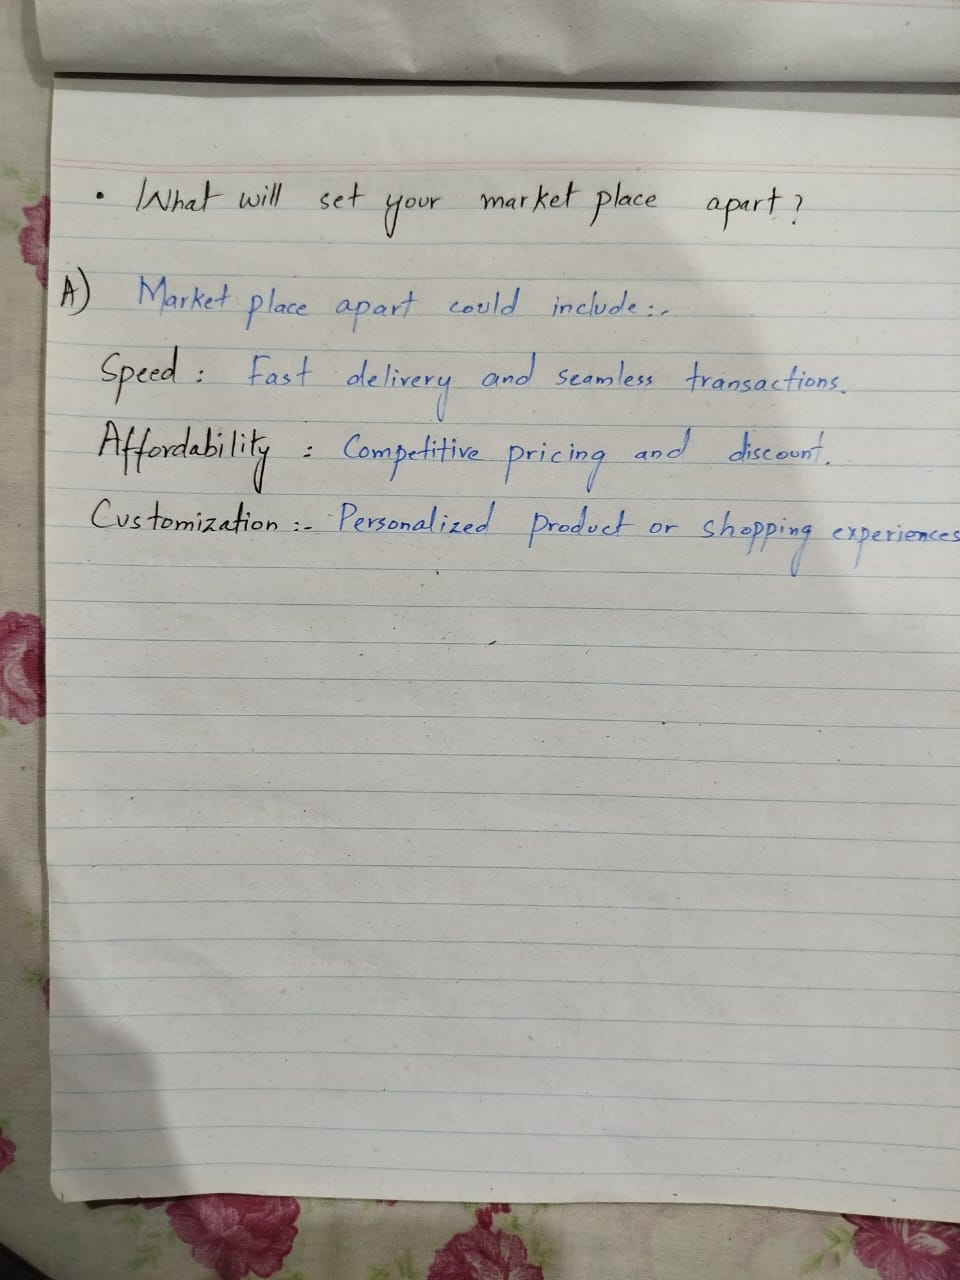 • What will set your market place apart?
A) Market place apart could include:-
Speed : Fast delivery and seamless transactions.
Affordability : Competitive pricing and discount.
Customization :- Personalized product or shopping experiences